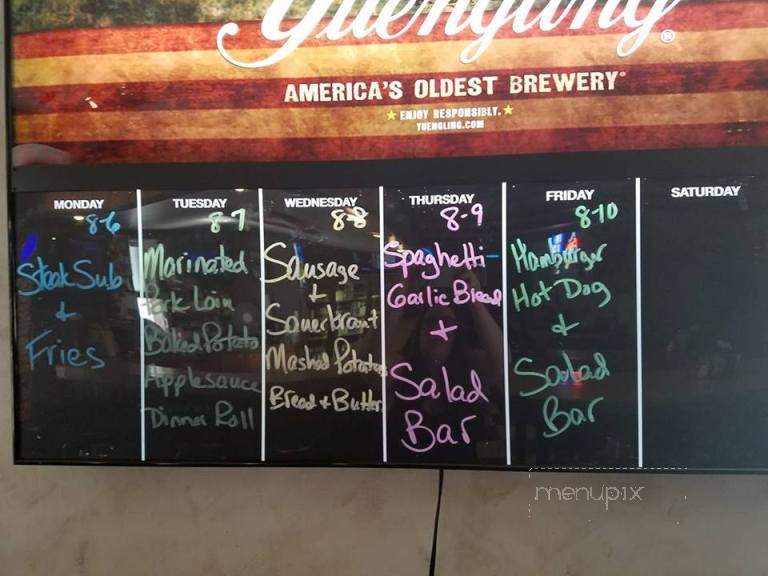 Yuengling®
AMERICA'S OLDEST BREWERY®
★ ENJOY RESPONSIBLY. ★
YUENGLING.COM
MONDAY
8-6
Steak Sub
+
Fries
TUESDAY
8-7
Marinated
Pork Loin
Baked Potato
Applesauce
Dinner Roll
WEDNESDAY
8-8
Sausage
+
Sauerkraut
Mashed Potatoes
Bread + Butter
THURSDAY
8-9
Spaghetti
Garlic Bread
+
Salad
Bar
FRIDAY
8-10
Hamburger
Hot Dog
+
Salad
Bar
SATURDAY
menupix